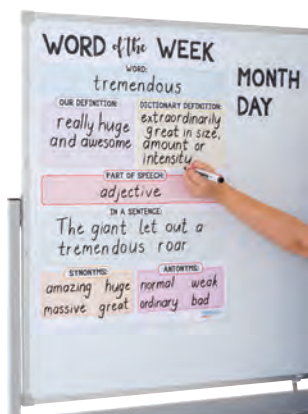 WORD of the WEEK
WORD:
tremendous
OUR DEFINITION:
really huge
and awesome
DICTIONARY DEFINITION:
extraordinarily
great in size,
amount or
intensity
PART OF SPEECH:
adjective
IN A SENTENCE:
The giant let out a
tremendous roar
SYNONYMS:
amazing huge
massive great
ANTONYMS:
normal weak
ordinary bad
MONTH
DAY